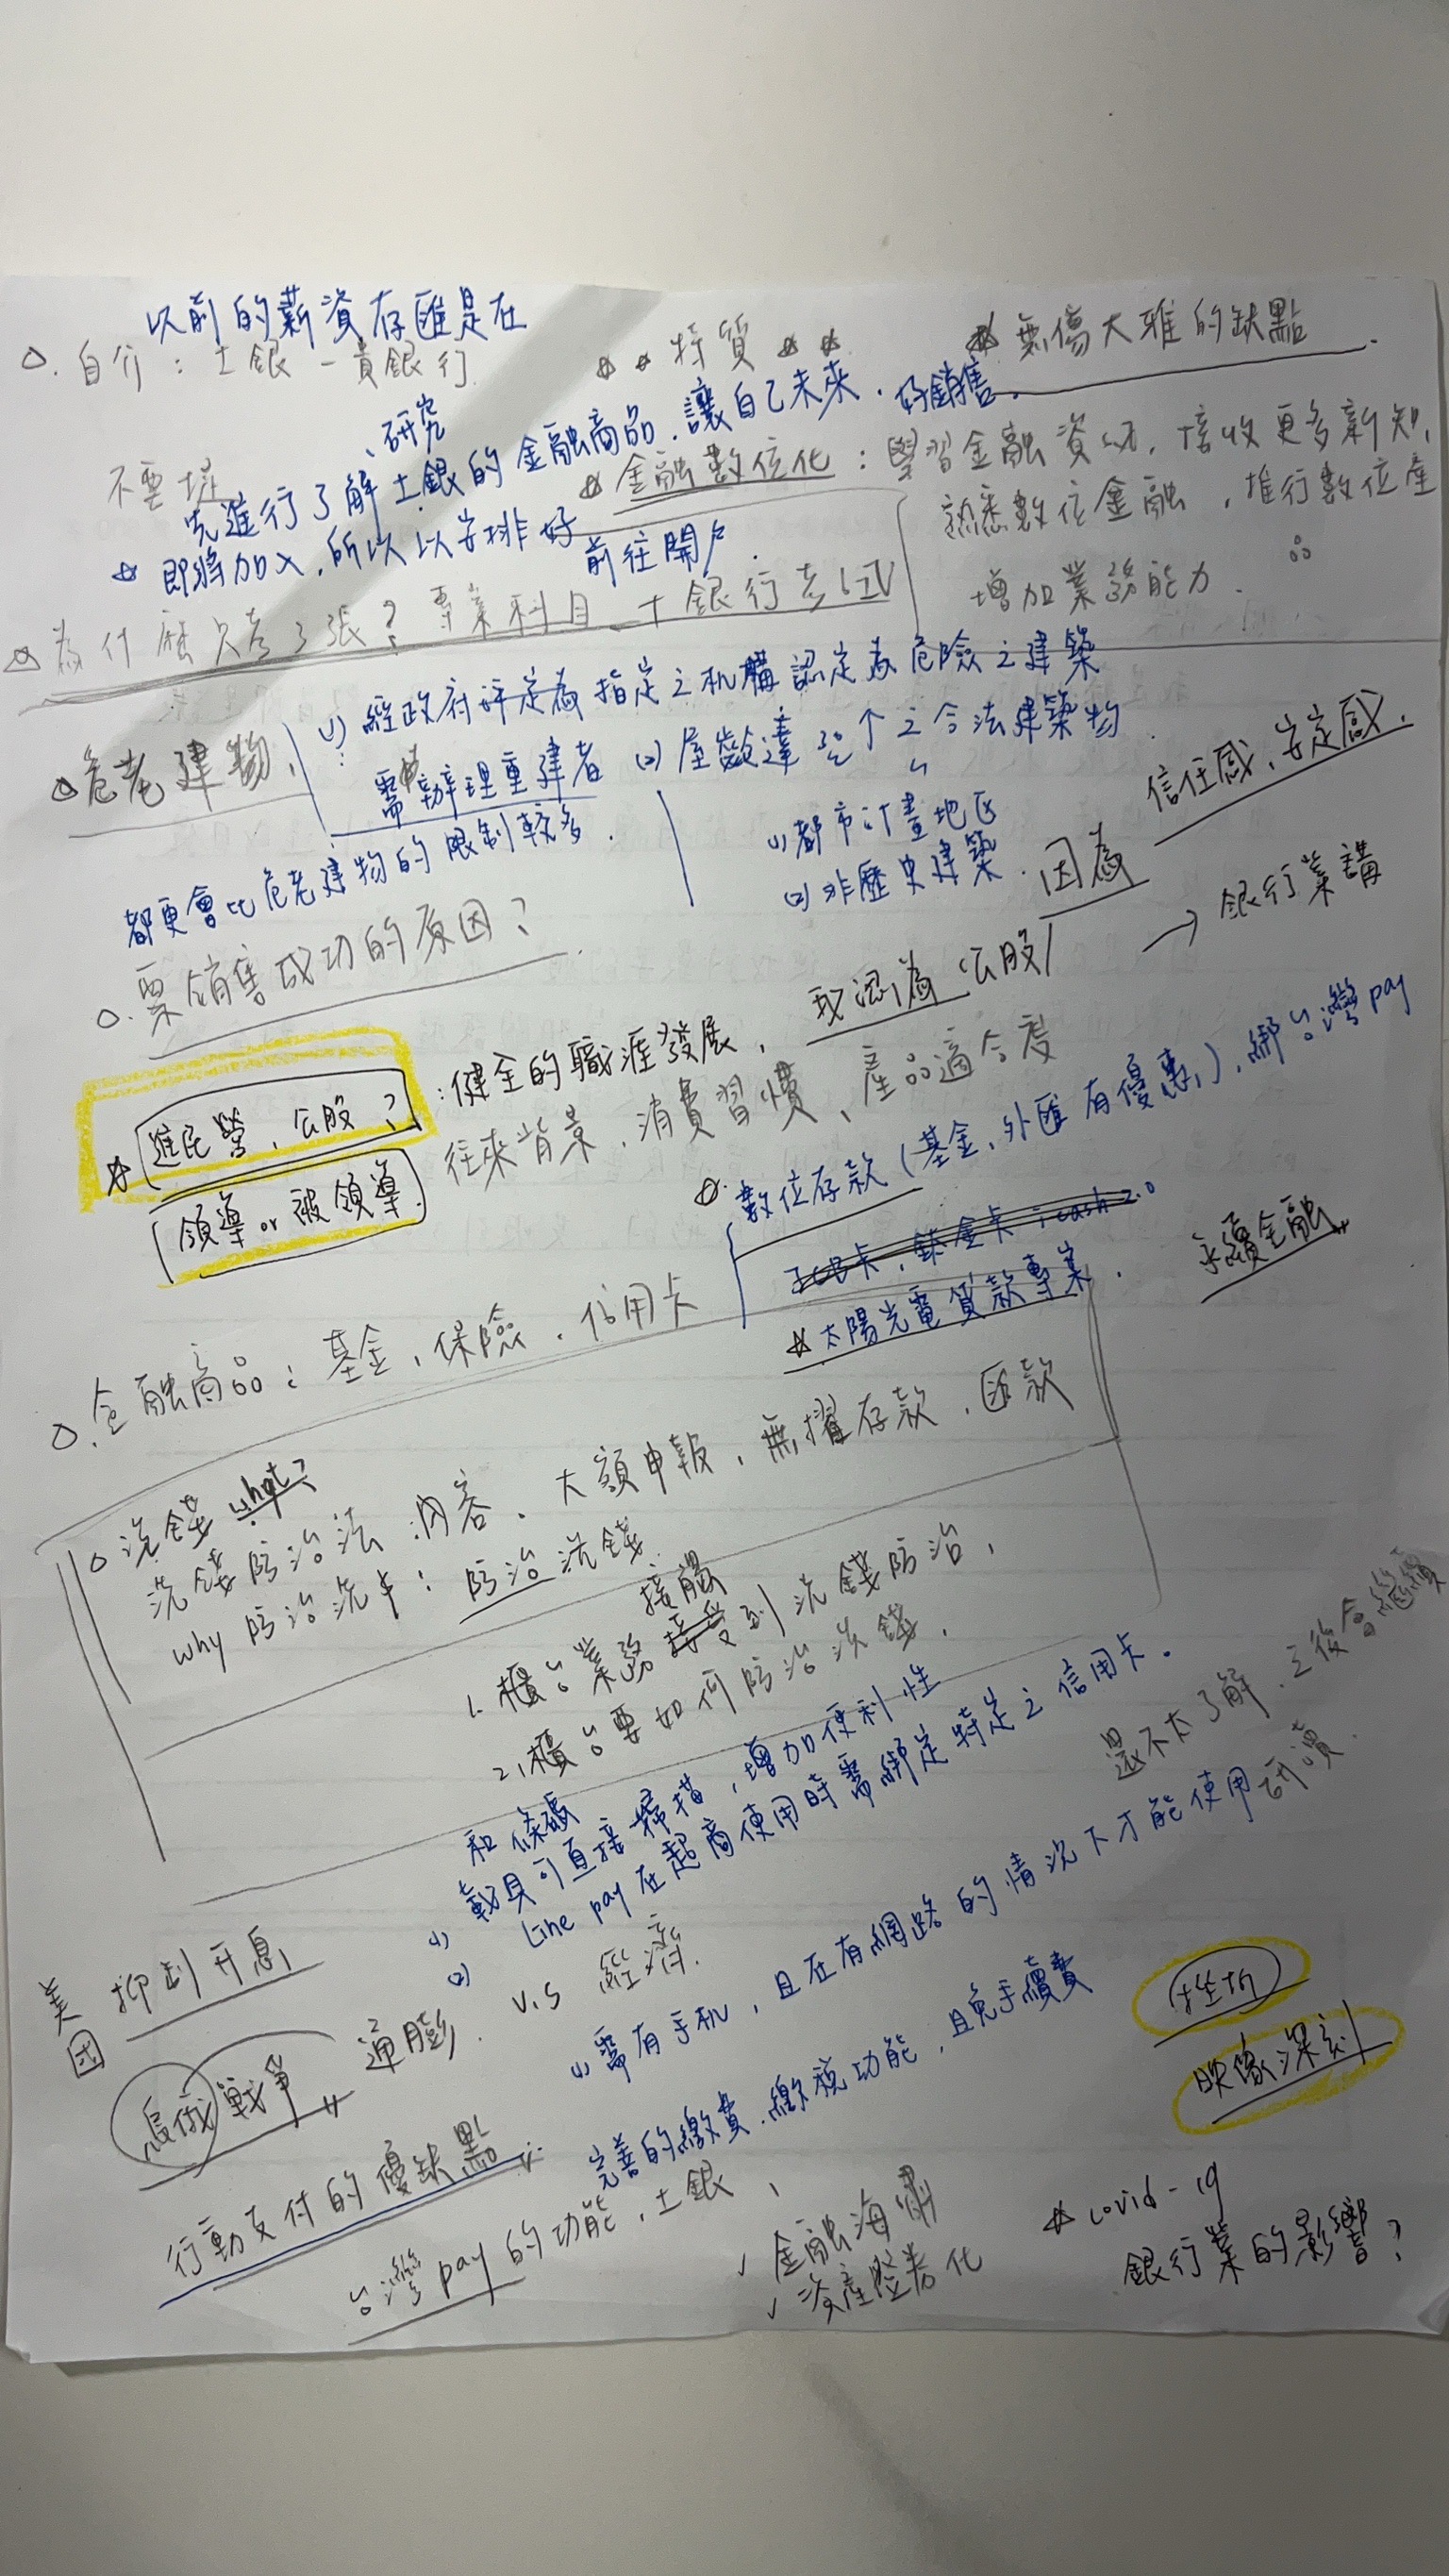 以前的薪資存匯是在
自介：土銀一貫銀行
特質
無傷大雅的缺點
不要提
、研究
先進行了解土銀的金融商品，讓自己未來．好銷售。
即將加入，所以以安排好前往開戶
金融數位化：學習金融資訊，接收更多新知，
熟悉數位金融，推行數位產品
增加業務能力．
為什麼只考3張？專業科目 土銀行考試
危老建物、
(1) 經政府評定為指定之机構認定為危險之建築
需辦理重建者
(2) 屋齡達30年之合法建築物
(1) 都市計畫地区
(2) 非歷史建築．
都更會比危老建物的限制較多．
因為
信任感、安定感．
要銷售成功的原因？
我認為公股
→ 銀行業講
進民營、公股？
：健全的職涯發展，
往來背景、消費習慣、產品適合度
領導 or 被領導．
數位存款（基金、外匯有優惠），綁台灣pay
JCB卡，鈦金卡，icash 2.0
太陽光電貸款專案．
永續金融
金融商品：基金、保險、信用卡
洗錢 what？
洗錢防治法：內容、大額申報，無摺存款，匯款
why 防治洗錢：防治洗錢
接觸
1、櫃台業務接受到洗錢防治，
2、櫃台要如何防治洗錢，
和條碼
(1) 載具可直接掃描，增加便利性
(2) Line pay在超商使用時需綁定特定之信用卡。
還不太了解，之後會繼續研讀．
美國 抑制升息
烏俄戰爭
通膨 v.s 經濟
(1) 需有手机，且在有網路的情況下才能使用
挫折
映像深刻
行動支付的優缺點：
完善的繳費、繳稅功能，且免手續費
台灣pay的功能，土銀、
✓ 金融海嘯
✓ 資產證券化
covid-19
銀行業的影響？